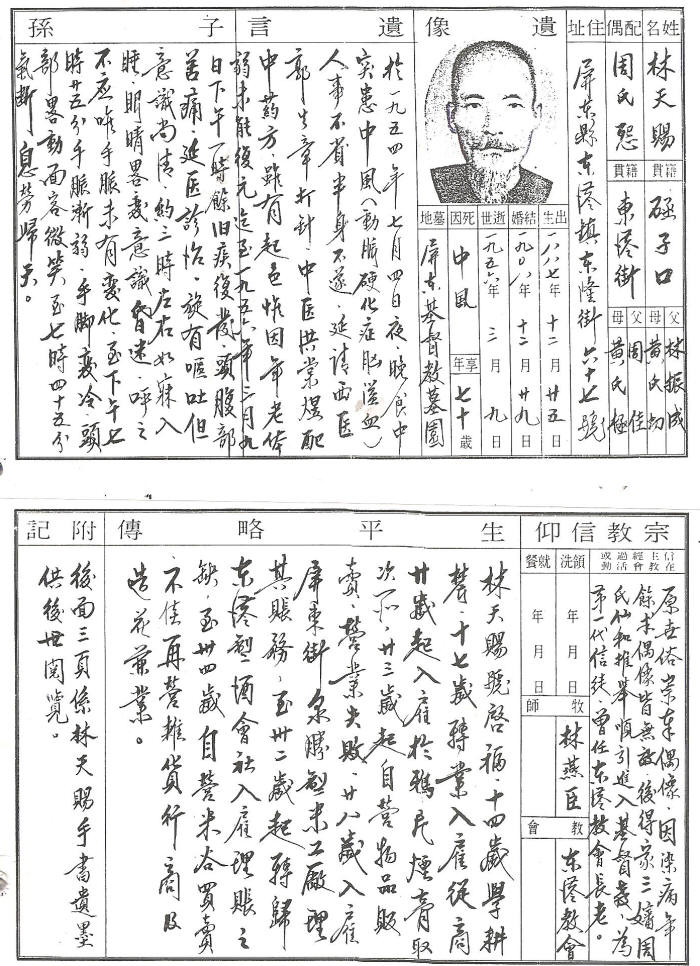 姓名
林天賜
籍貫
磘子口
父 林振成
母 黃氏勿
配偶
周氏恕
籍貫
東港街
父 周佳
母 黃氏極
住址
屏東縣東港鎮東隆街六十七號
遺像
出生
一八八七年十二月廿五日
結婚
一九〇八年十二月廿九日
逝世
一九五六年三月九日
死因
中風
享年
七十歲
墓地
屏東基督教墓園
遺言
子孫
於一九五四年七月四日夜晚食中
突患中風(動脈硬化症腦溢血)
人事不省半身不遂、延請西医
郭生章打針、中医洪棠煜配
中葯方、雖有起色惟因年老体
弱未能復元迄至一九五六年三月九
日下午一時餘旧疾復發頭腹部
苦痛、延医診治、旋有嘔吐但
意識尚清、約三時左右如寐入
睡、眼睛畧变意識昏迷呼之
不應唯手脈未有变化、至下午七
時廿五分手脈漸弱、手脚变冷頭
部畧動面容微笑至七時四十五分
氣斷、息勞歸天。
宗教信仰
信主經過或
在教會活動
原在俗崇奉偶像因染病年
餘求偶像皆無效、後得家三嬸周
氏仙和推舉順引進入基督教、為
第一代信徒、曾任東港教會長老。
領洗
年月日
就餐
年月日
牧師
林燕臣
教會
東港教會
生平略傳
林天賜號啓福、十四歲學耕
農、十七歲轉業入雇從商
廿歲起入雇於鴉片煙膏取
次所、廿三歲起自營物品販
賣、營業失敗、廿八歲入雇
屏東街泉勝製米工廠理
其賬務、至卅二歲起轉歸
東港製酒會社入雇理賬之
缺、至卅四歲自營米谷買賣
不佳再營雜貨行商及
造花兼業。
附記
後面三頁係林天賜手書遺墨
供後世閱覽。